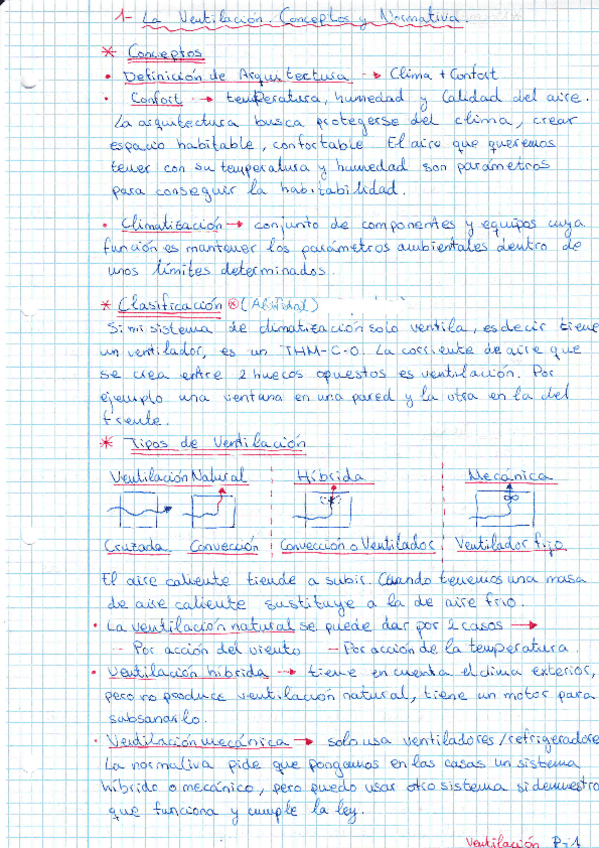 1- La Ventilación. Conceptos y Normativa.
* Conceptos
• Definición de Arquitectura → Clima + Confort
• Confort → temperatura, humedad y Calidad del aire.
La arquitectura busca protegerse del clima, crear
espacio habitable, confortable. El aire que queremos
tener con su temperatura y humedad son parámetros
para conseguir la habitabilidad.
• Climatización → conjunto de componentes y equipos cuya
función es mantener los parámetros ambientales dentro de
unos límites determinados.
* Clasificación
Si mi sistema de climatización solo ventila, es decir tiene
un ventilador, es un THM-C-0. La corriente de aire que
se crea entre 2 huecos opuestos es ventilación. Por
ejemplo una ventana en una pared y la otra en la del
frente.
* Tipos de Ventilación
Ventilación Natural Híbrida Mecánica
Cruzada Convección Convección o Ventilador Ventilador fijo
El aire caliente tiende a subir. Cuando tenemos una masa
de aire caliente sustituye a la de aire frio.
• La ventilación natural se puede dar por 2 casos →
- Por acción del viento - Por acción de la temperatura.
• Ventilación híbrida → tiene en cuenta el clima exterior,
pero no produce ventilación natural, tiene un motor para
subsanarlo.
• Ventilación mecánica → solo usa ventiladores/refrigeradore
La normativa pide que pongamos en las casas un sistema
híbrido o mecánico, pero puedo usar otro sistema si demuestro
que funciona y cumple la ley.
Ventilación P-1